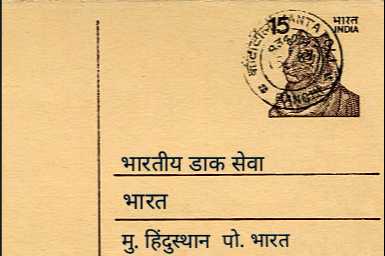 15 भारत
INDIA
भारतीय डाक सेवा
भारत
मु. हिंदुस्थान पो. भारत